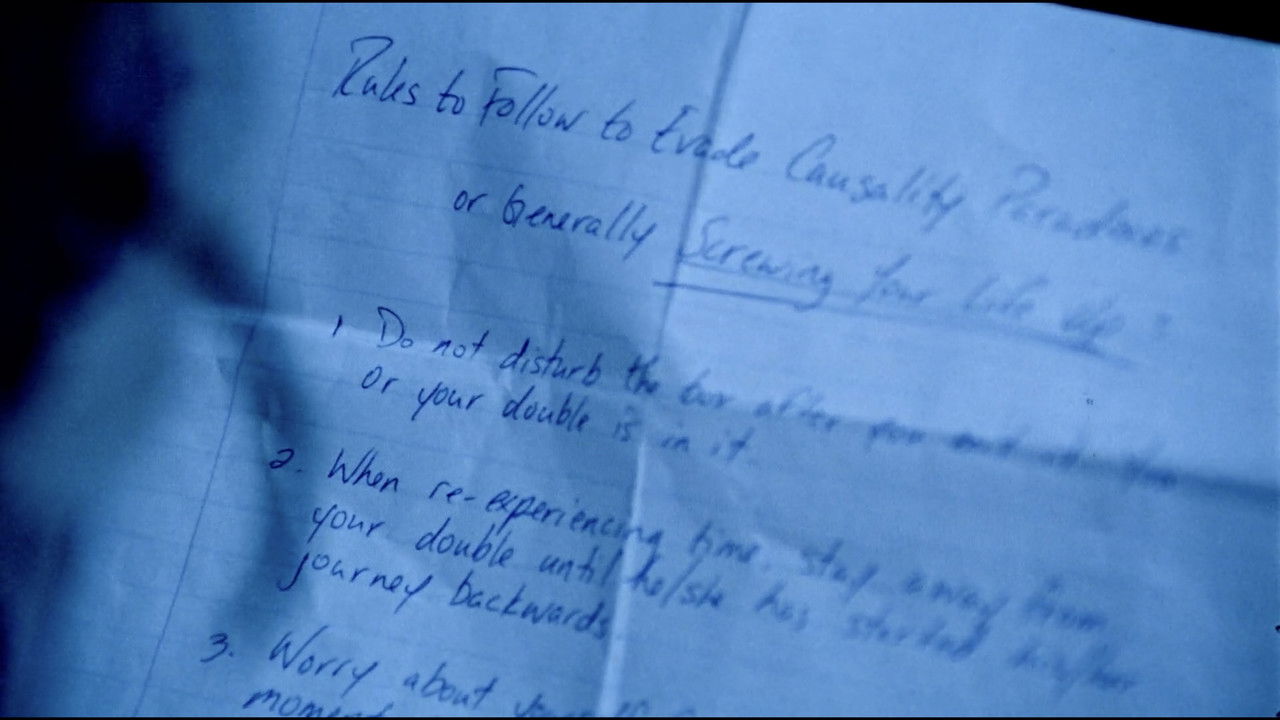 Rules to Follow to Evade Causality Paradoxes
or Generally Screwing Your Life Up:
1 Do not disturb the box after you
or your double is in it.
2. When re-experiencing time, stay away from
your double until he/she has started his/her
journey backwards.
3. Worry about
moment